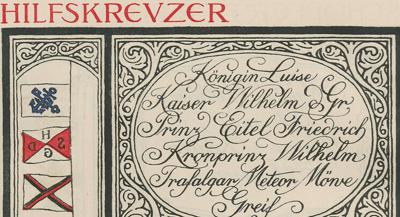 HILFSKREVZER
Königin Luise
Kaiser Wilhelm d Gr
Prinz Eitel Friedrich
Kronprinz Wilhelm
Trafalgar Meteor Möwe
Greif
H
D S
G